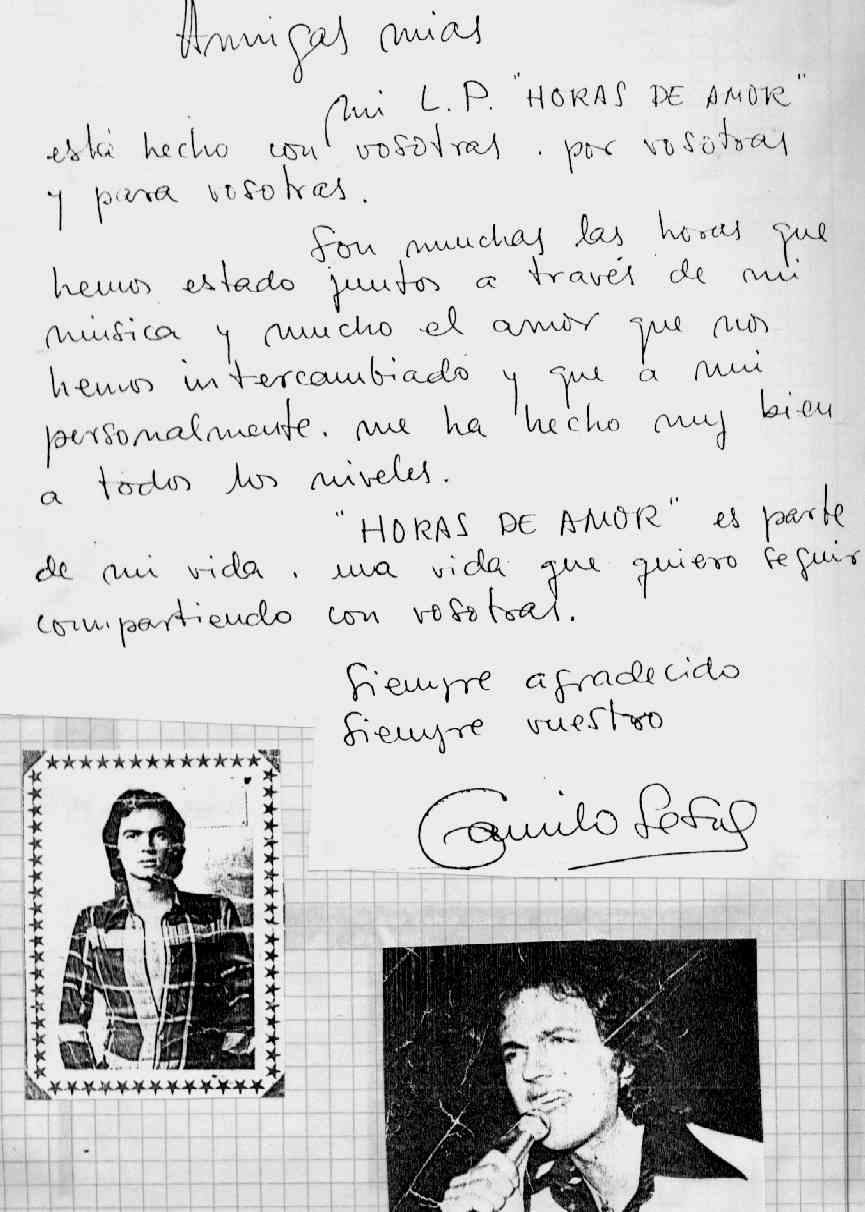 Amigas mias
mi L.P. "HORAS DE AMOR"
está hecho con vosotras . por vosotras
y para vosotras.
Son muchas las horas que
hemos estado juntos a través de mi
música y mucho el amor que nos
hemos intercambiado y que a mi
personalmente. me ha hecho muy bien
a todos los niveles.
"HORAS DE AMOR" es parte
de mi vida . una vida que quiero seguir
compartiendo con vosotras.
Siempre agradecido
Siempre vuestro
Camilo Sesto